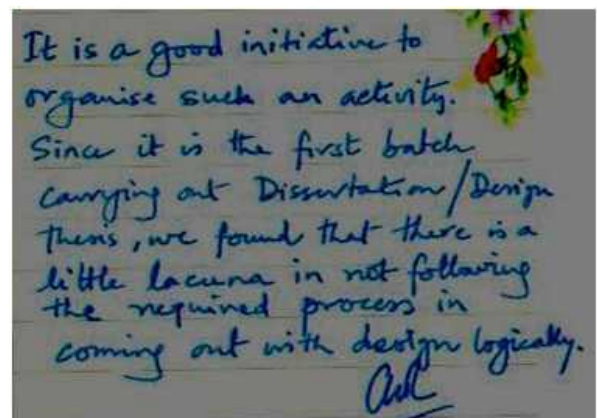 It is a good initiative to
organise such an activity.
Since it is the first batch
carrying out Dissertation/Design
thesis, we found that there is a
little lacuna in not following
the required process in
coming out with design logically.